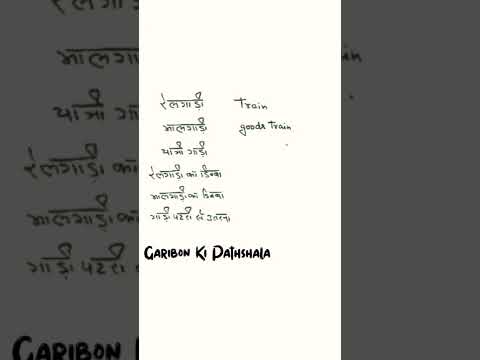 रेलगाड़ी Train
मालगाड़ी goods Train
यात्री गाड़ी
रेलगाड़ी का डिब्बा
मालगाड़ी का डिब्बा
गाड़ी पटरी से उतरना
Garibon Ki Pathshala